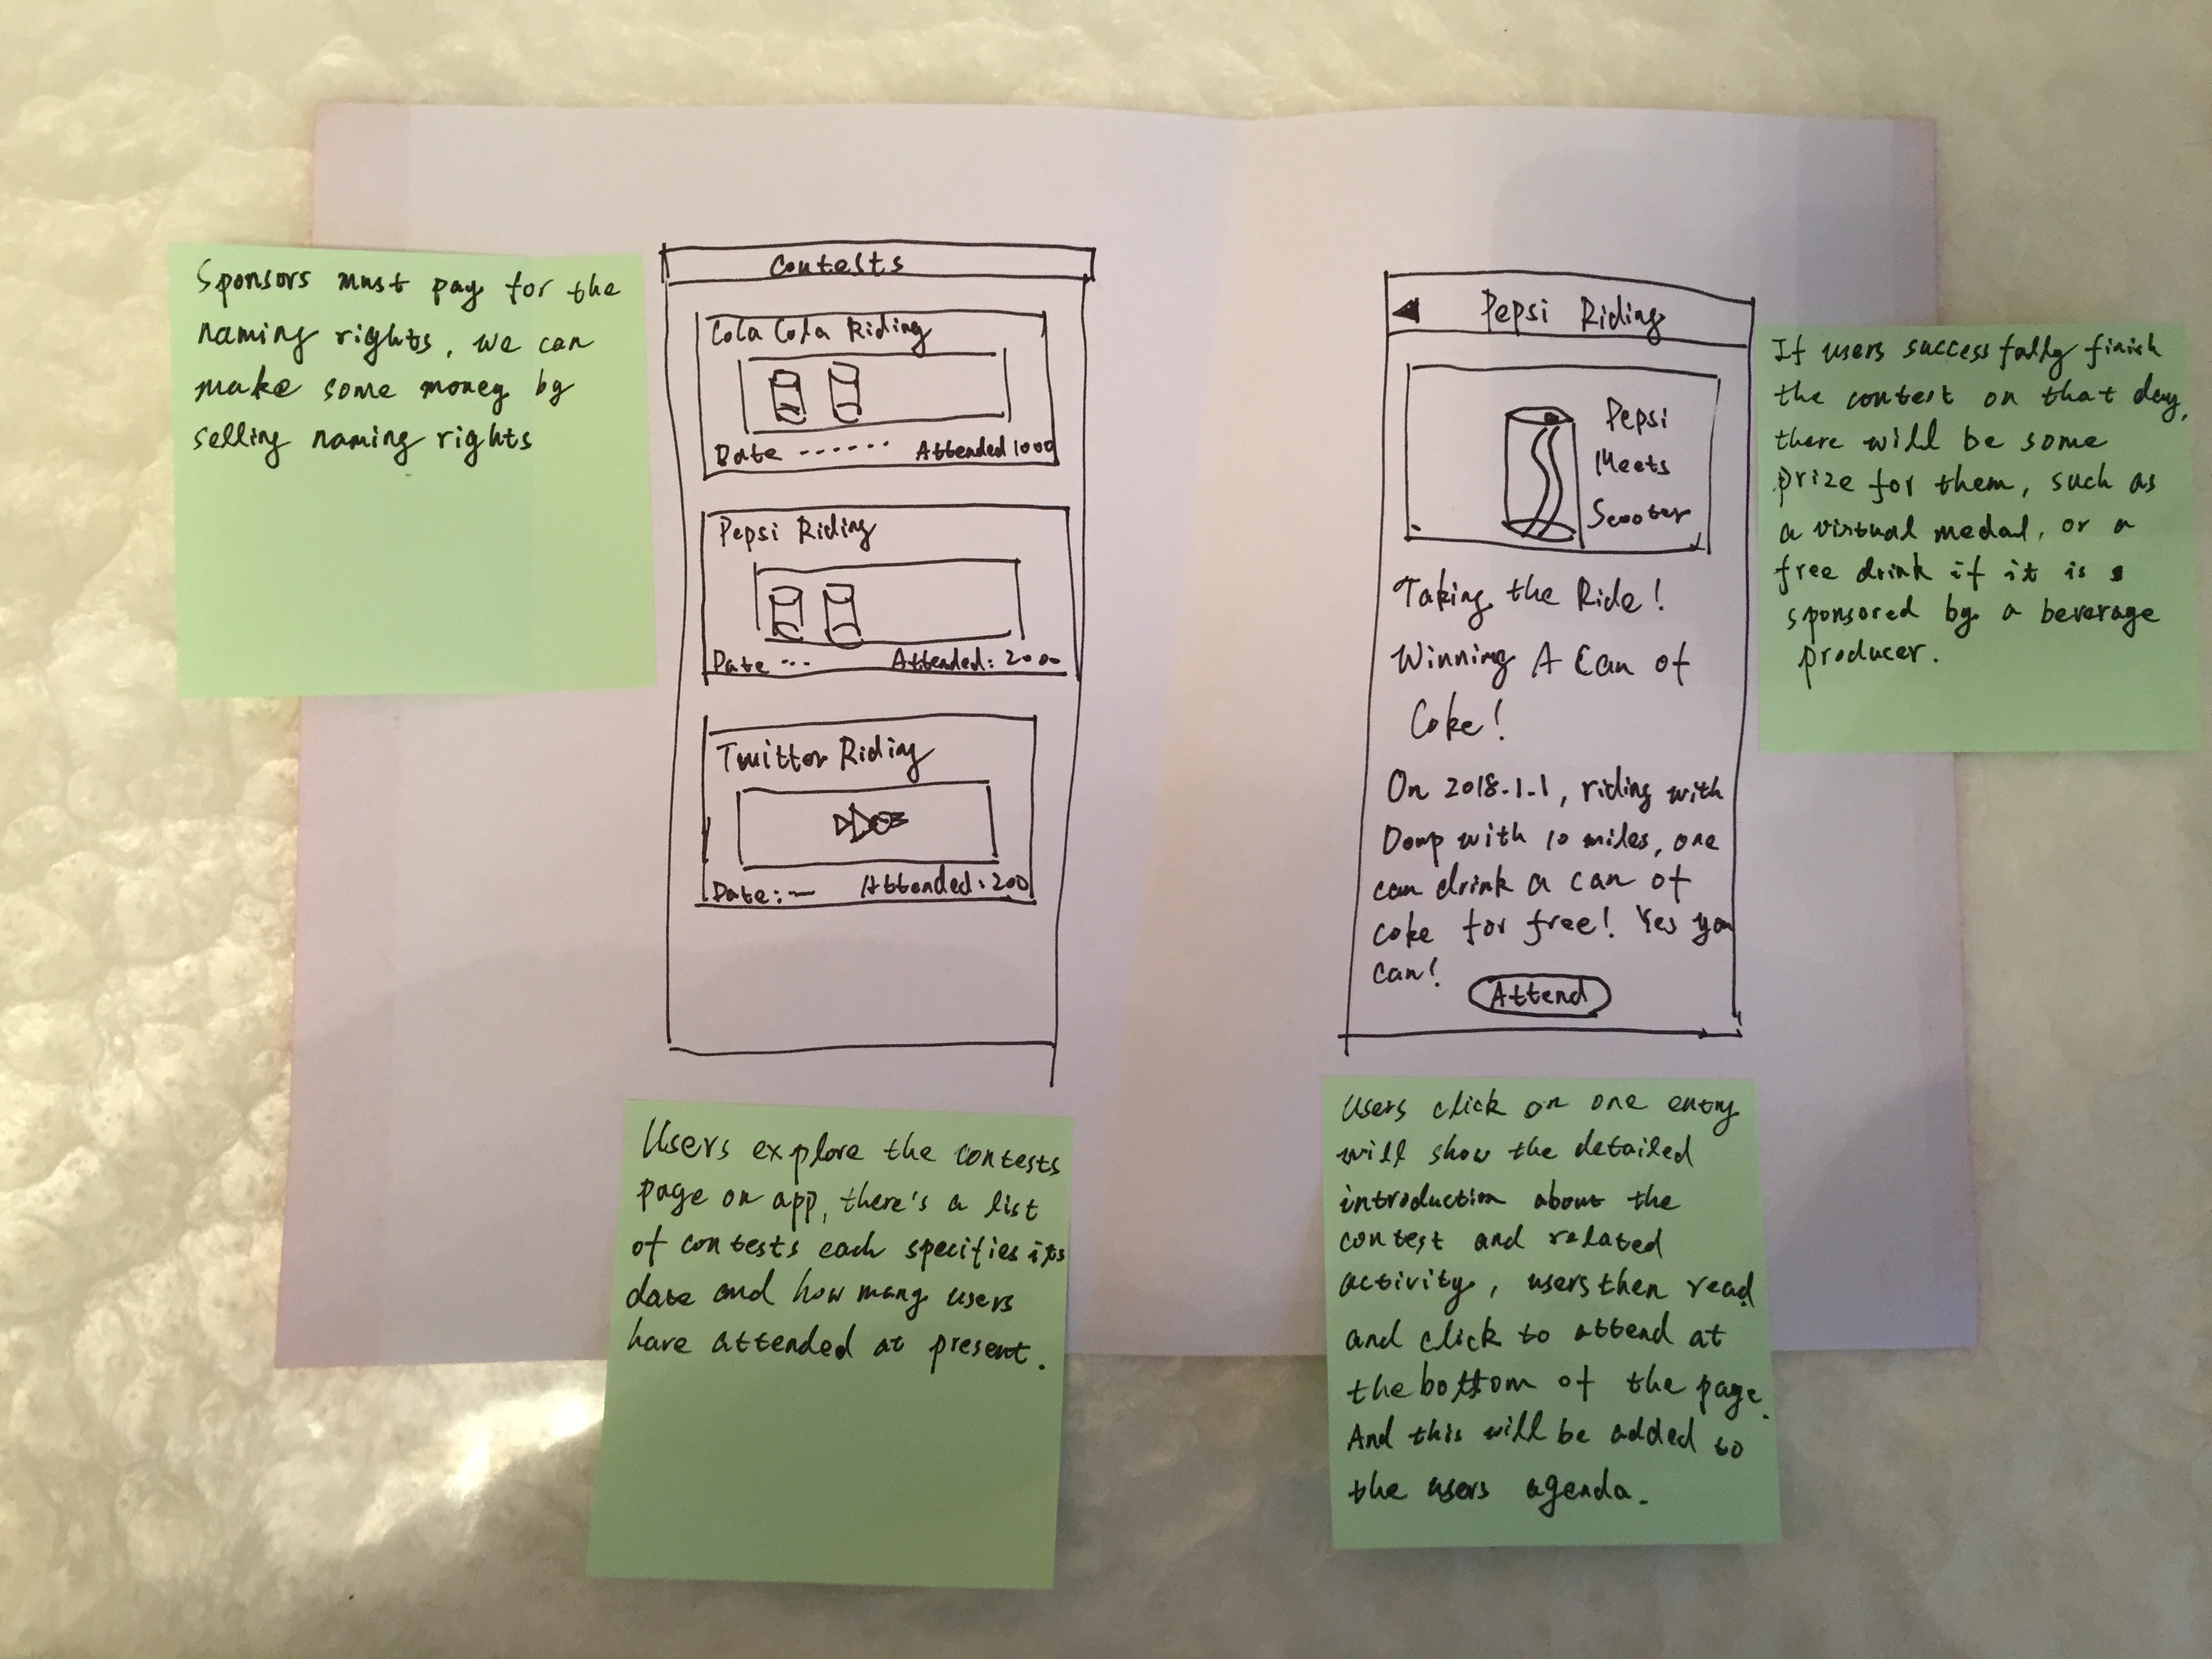 Sponsors must pay for the
naming rights, we can
make some money by
selling naming rights
Contests
Cola Cola Riding
Date ------ Attended 1000
Pepsi Riding
Date --- Attended: 2000
Twitter Riding
Date: — Attended: 200
Users explore the contests
page on app, there's a list
of contests each specifies its
date and how many users
have attended at present.
Pepsi Riding
Pepsi
Meets
Scooter
Taking the Ride!
Winning A Can of
Coke!
On 2018.1.1, riding with
with 10 miles, one
can drink a can of
coke for free! Yes you
can!
Attend
If users successfully finish
the contest on that day,
there will be some
prize for them, such as
a virtual medal, or a
free drink if it is
sponsored by a beverage
producer.
Users click on one entry
will show the detailed
introduction about the
contest and related
activity, users then read
and click to attend at
the bottom of the page.
And this will be added to
the users agenda.